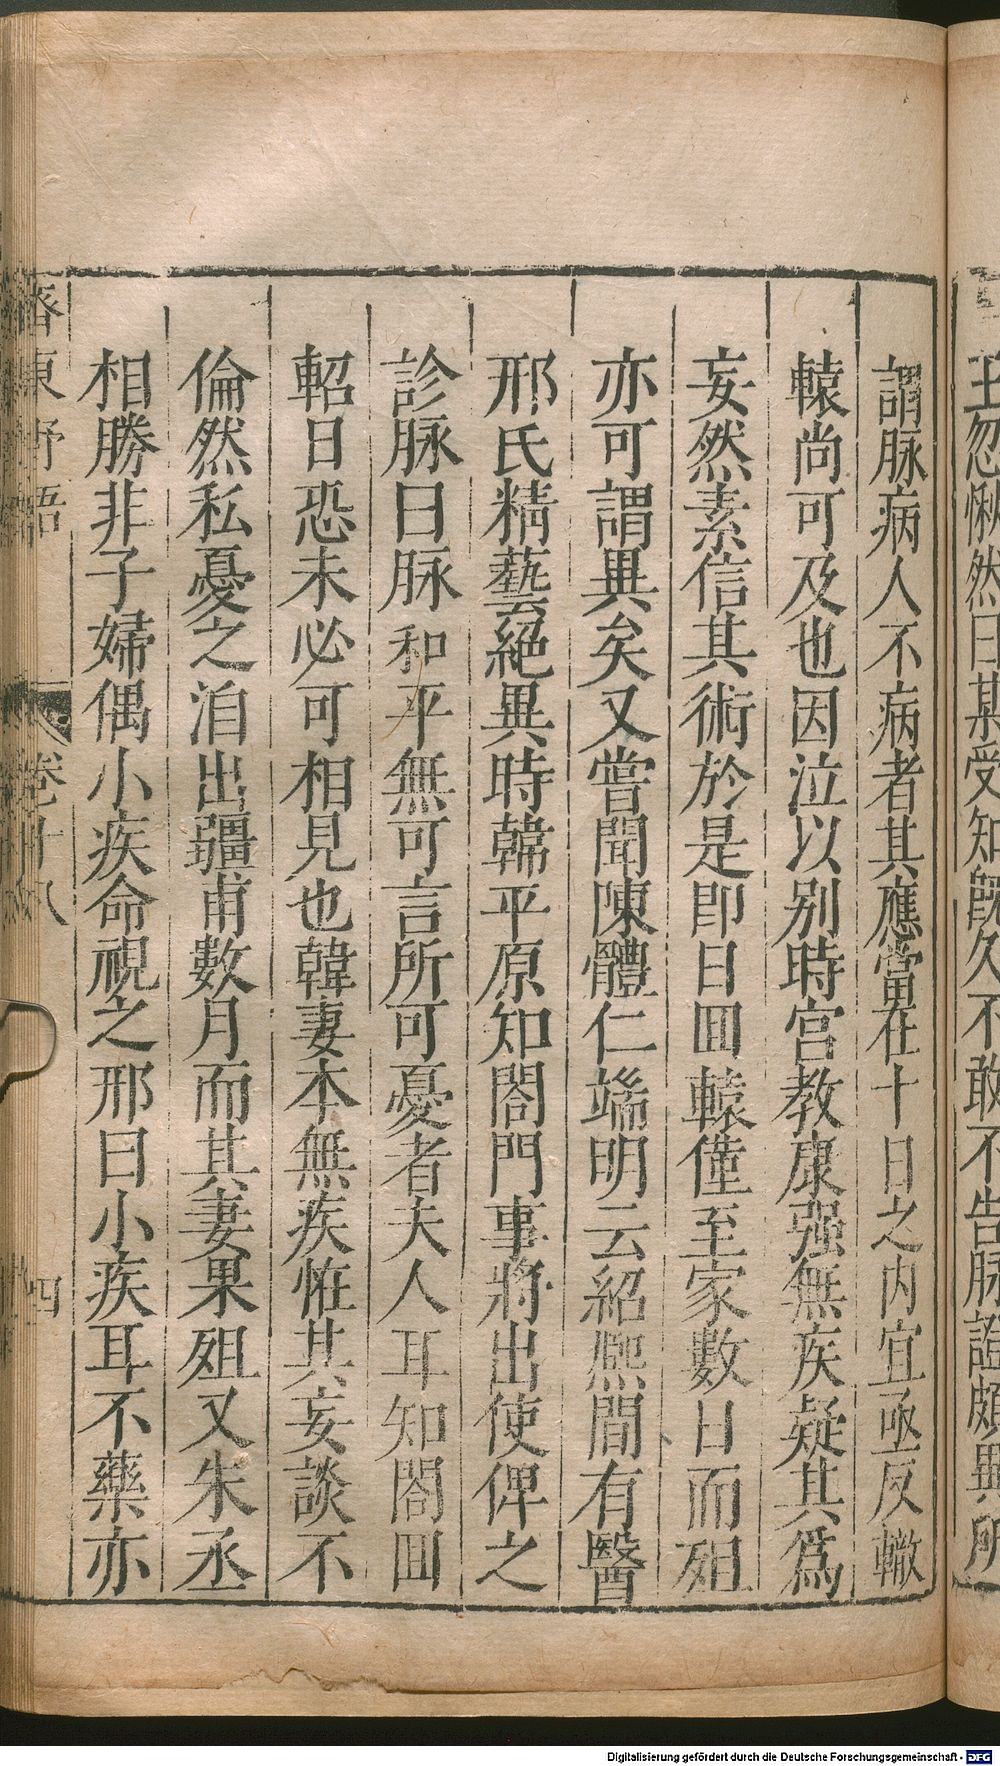 王忽愀然曰某受知既久不敢不告脉證頗異所
謂脉病人不病者其應當在十日之内宜亟反轍
轅尚可及也因泣以别時宮教康强無疾疑其爲
妄然素信其術於是即日囬轅僅至家數日而殂
亦可謂異矣又嘗聞陳體仁端明云紹熈間有醫
邢氏精藝絕異時韓平原知閤門事將出使俾之
診脉曰脉和平無可言所可憂者夫人耳知閤囬
軺日恐未必可相見也韓妻本無疾恠其妄談不
倫然私憂之洎出疆甫數月而其妻果殂又朱丞
相勝非子婦偶小疾命視之邢曰小疾耳不藥亦
齊東野語 卷十八 四
Digitalisierung gefördert durch die Deutsche Forschungsgemeinschaft - DFG